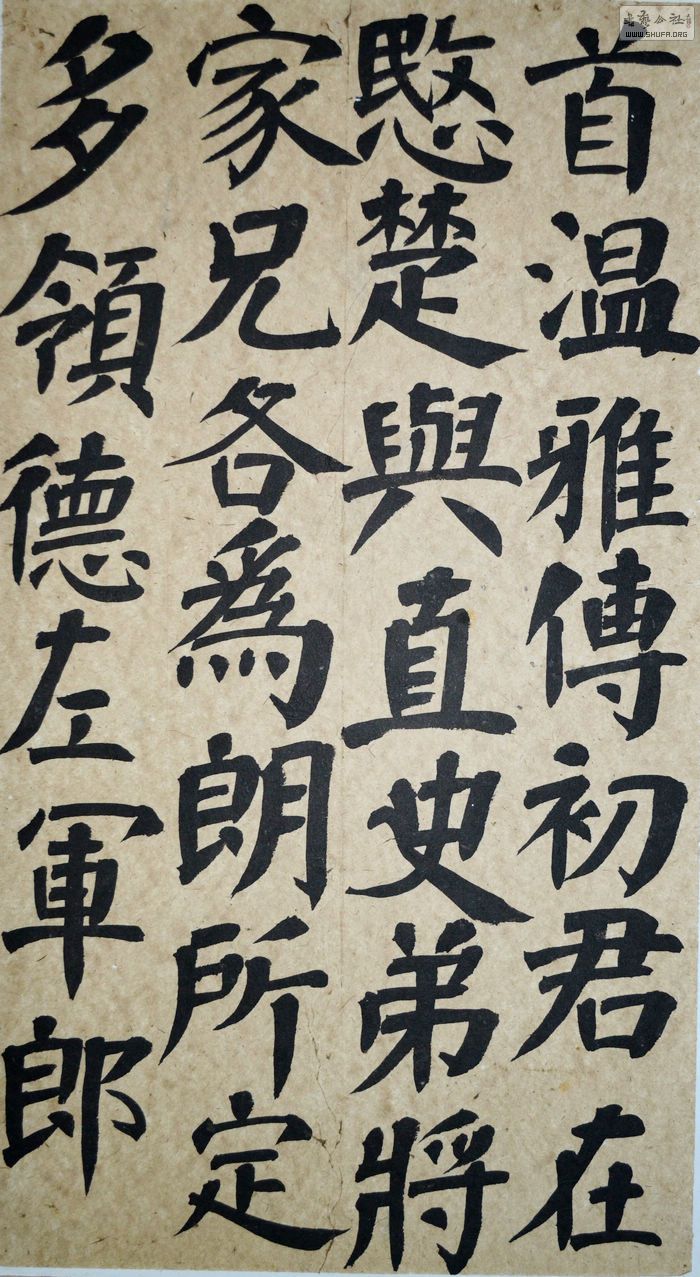 首温雅傅初君在
愍楚與直史弟將
家兄各為朗所定
多領德左軍郎
WWW.SHUFA.ORG